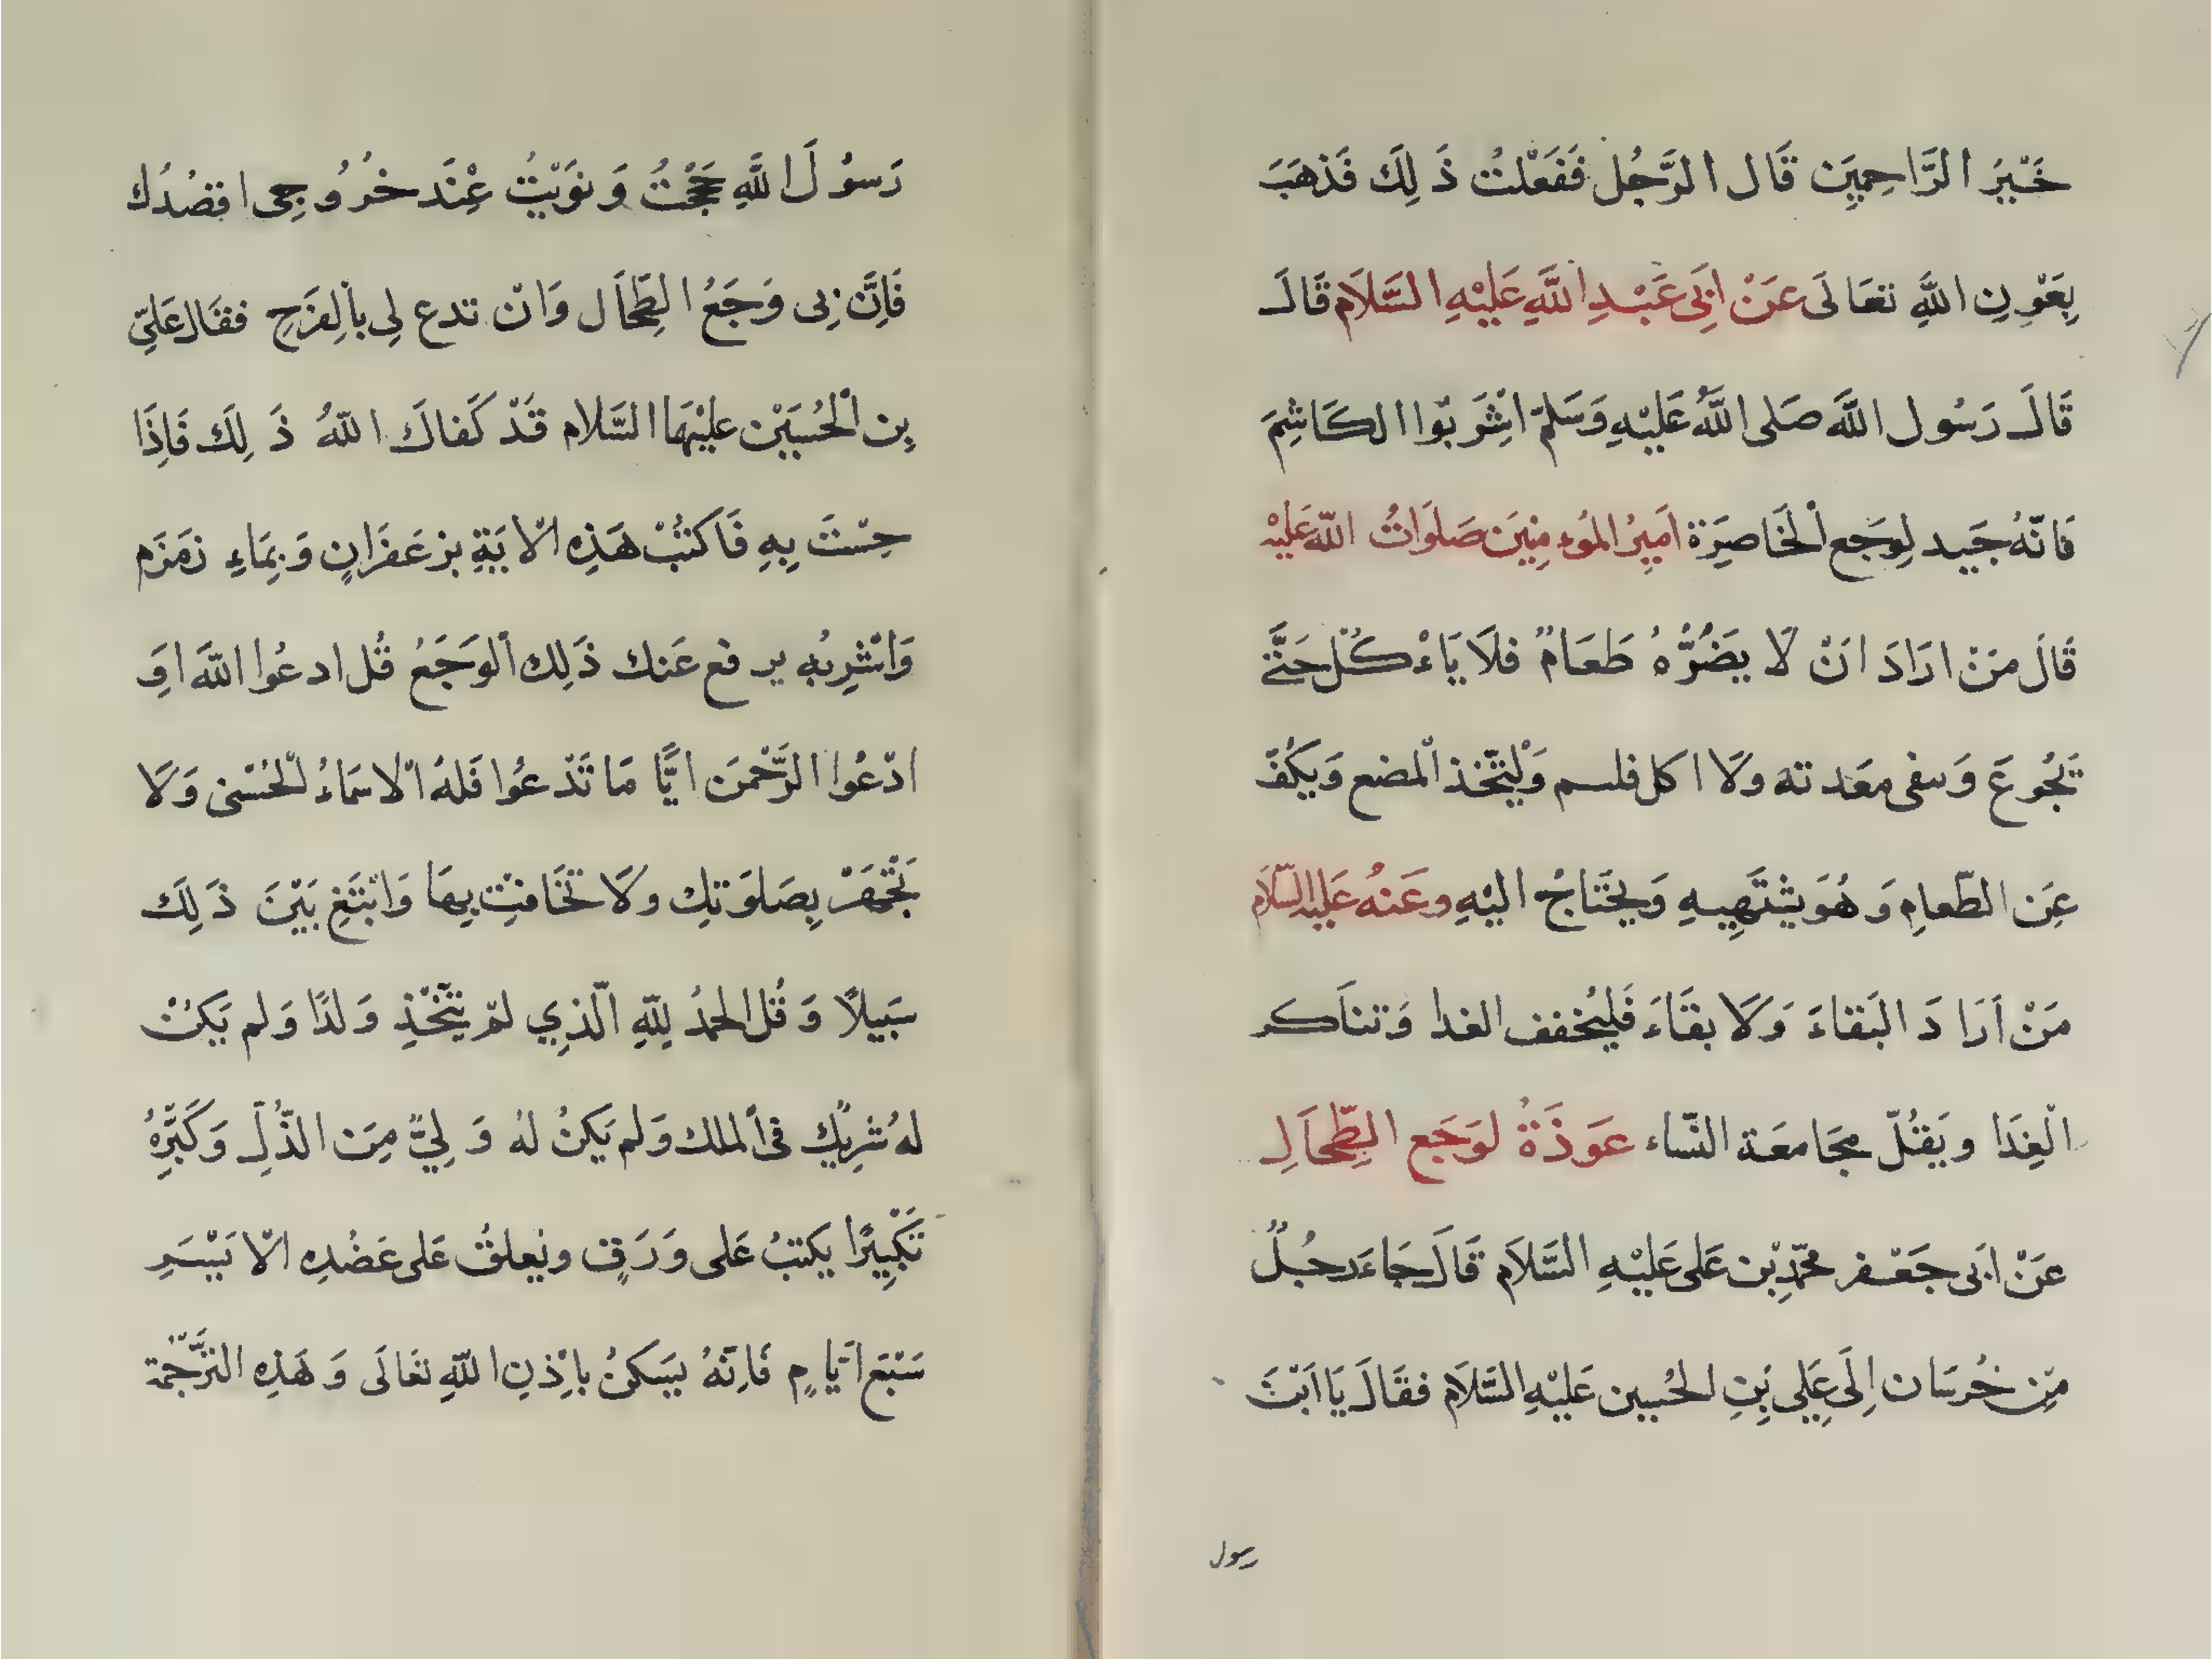 خَيْرُ الرَّاحِمِيِن قَال الرَّجُل فَفَعْلتُ ذَلِكَ فَذهَبَ
بِعَوْنِ اللَّهِ تعَالَى عَنْ ابَِى عَبْدِ اللَّهِ عَلَيْهِ السَّلَام قَالَ
قَالَ رَسُول اللَّه صَلى اللَّهُ عَليْهِ وَسَلمّ اشِْرَبوّا الكَاشِمَ
فَانّهُ جَيد لِوَجَع اْلخَاصِرَة اَمِيرُ المُوءمِنِيَن صَلَوَاتُ اللّه عَليْهِ
قَالَ مَنْ ارَادَ انْ لا يضُرُّهُ طَعَامٌ فلَا يَاءْكُلْ حَتَّى
تَجُوعَ وَسفى معَدته وَلَا اكل فلسم وَلْيتّخذ اْلمضع وَيكُفّ
عَِن الطّعامِ وَ هُوَ يشْتَهِيهِ وَيحْتَاجُ اليْهِ وعَنهُ عَليه السّلَام
مَنْ اَرَادَ البَقاءَ وَلَا بقَاءَ فَليُخفف الغدا وَتناَكر
الْغِدَا ويَقُلّ مجَامعَة النّساء عَوذَةُ لوَجَع الطِّحَالِ
عَنْ ابَى جَعْفر محّمدِ بْن عَلى عَليْهِ السَّلَام قَالَ جَاءَ رجُلٌ
مِّن خُرسَان اِلَى عَِلِى بُنِ الحُسين عَليْهِ السَّلَام فقَالَ يَا ابْنَ
رسول
رَسوُلَ اللَّهِ حَجَجْتُ وَنوَيْتُ عِنَْد خرُوُجِى اقصُدُك
فَاِنَّ بِى وَجَعُ الطِّحَاَل وَانْ تدع لِى باْلِفرَحِ فقَال عَلِىّ
بِن اْلحُسَيَْن عليْهَما السَّلام قَدْ كَفاكَ اللّهُ ذَلِكَ فَاِذَا
حِسْتَ بِهِ فَاكتُبْ هَذِهِ اْلايَةِ بزعَفَرَانٍ وَبِمَاءِ زمَزَم
وَاشْرِبُهِ يرفع عَنك ذَلِك اْلوَجَعُ قُل ادعُوا اللّهَ اوَِ
ادّعُوا الرَّحْمنَ ايًّا مَا تَدْعُوا فَلهُ اْلاسمَاءُ لْحُسْنى وَلَا
تَجْهَرْ بِصَلوَتكِ ولَا تخَافتِ بِهَا وَابْتَغِ بَيْنَ ذَلِكَ
سَبَيلًا وَقُل الحمدُ لِلّهِ الّذِي لمْ يتَّخْذِ وَلدًا وَلم يَكنْ
لهُ شرِيكٌ فى اْلملك وَلم يَكنُ لهُ وَلِيٌّ مِنَ الذُّلِّ وَكَبّرِهُ
تَكْبِيرًا يكتبُ عَلى وَرَقٍ ويُعلقُ عَلى عَضُدِهِ اْلايْسَرِ
سَبْعَ اَيّامٍ فَاِنّهُ يسَكنُ بِاذِْنِ اللّهِ تعَالَى وَهَذِهِ الترَّجّمة